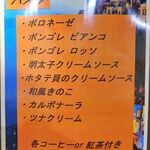 パスタ
・ボロネーゼ
・ボンゴレ ビアンコ
・ボンゴレ ロッソ
・明太子クリームソース
・ホタテ貝のクリームソース
・和風きのこ
・カルボナーラ
・ツナクリーム
各コーヒーor 紅茶付き